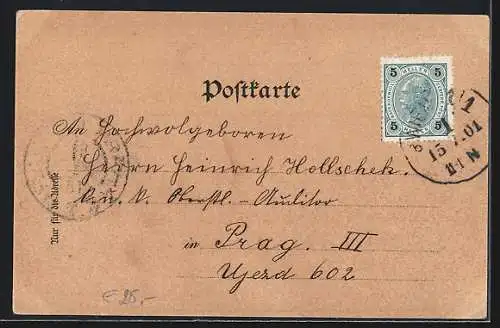 Postkarte
5 HELLER 5
5 5
1
15.7.01
11-1N
An Hochwolgeboren
Herrn Heinrich Hollschek
k.u.k. Oberstl.-Auditor
in Prag. III
Ujezd 602
Nur für die Adresse
€ 25,-